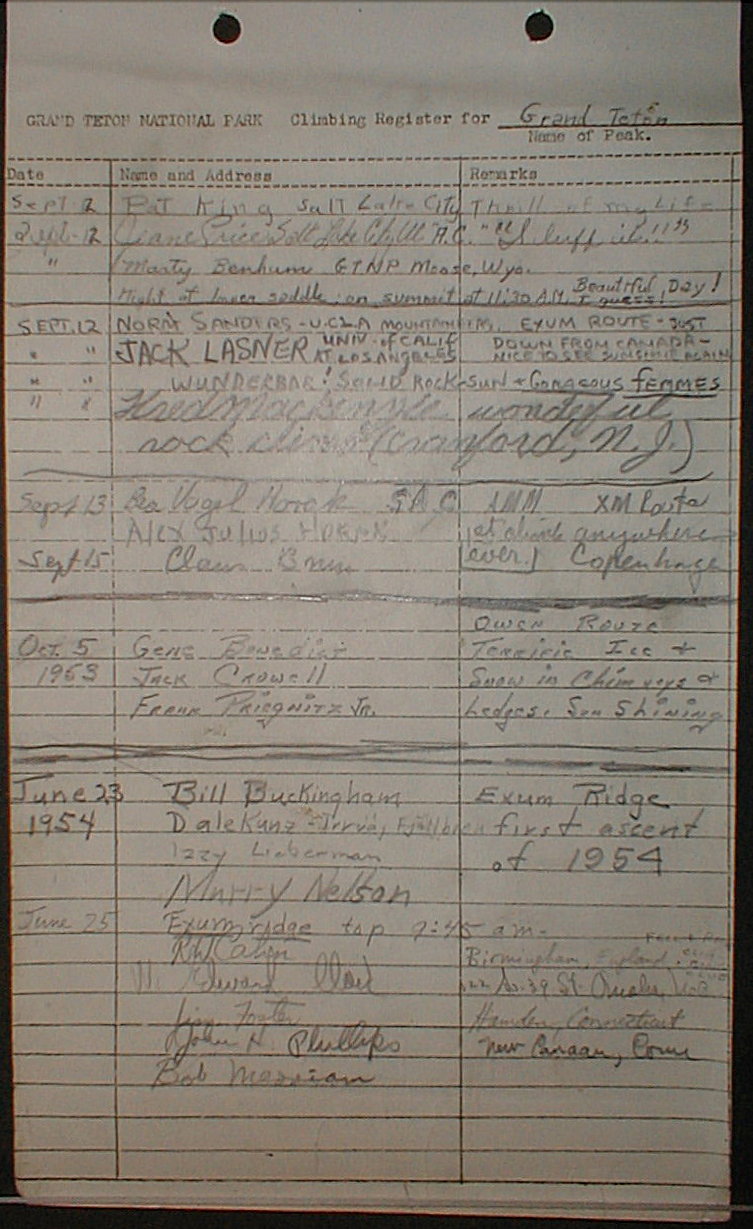 GRAND TETON NATIONAL PARK Climbing Register for Grand Teton
Name of Peak.
Date Name and Address Remarks
Sept 12 Pat King Salt Lake City Thrill of my Life
Sept-12 Jeane Price Salt Lake City, Ut
" Marty Benham GTNP Moose, Wyo.
Night at lower saddle; on summit at 11:30 A.M. Beautiful Day! I guess!
SEPT. 12 NORM SANDERS - U.C.L.A MOUNTAINEERS, EXUM ROUTE - JUST
" " JACK LASNER UNIV. of CALIF AT LOS ANGELES DOWN FROM CANADA - NICE TO SEE SUNSHINE AGAIN
" " WUNDERBAR! SOLID ROCK - SUN + GORGEOUS FEMMES
" " Fred Mackenzie wonderful
rock climb (Cranford, N.J.)
Sept 13 Bea Vogel Horak SAC XM Route
ALEX JULIUS HORAK anywhere
Sept 15 Claus ever.) Copenhage
OWEN ROUTE
Oct. 5 GENE Benedict Terrific Ice +
1953 JACK CROWELL Snow in Chimneys &
FRANK PRIEGNITZ JR. Ledges. Sun Shining
June 23 Bill Buckingham Exum Ridge
1954 Dale Kunz - first ascent
Izzy Lieberman of 1954
Murry Nelson
June 25 Exum ridge top 9:45 am.
Birmingham, England
Edward So. 39 St. Omaha
Jim Foster Hamden, Connecticut
John H. Phillips New Canaan, Conn
Bob Merriam